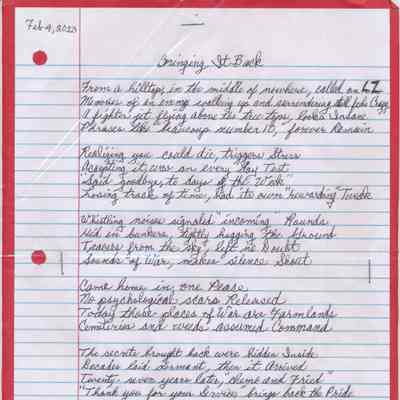 Feb 4, 2023
Bringing It Back
From a hilltop in the middle of nowhere, called an LZ
Memories of an enemy walking up and surrendering still feels Crazy
A fighter jet flying above the tree tops, looked Insane
Phrases like "beaucoup number 10," forever Remain
Realizing you could die, triggers Stress
Accepting it, was an every day Test
Said "goodbye, to days of the Week"
Losing track of time, had its own "rewarding Tweak
Whistling noises signaled "incoming Rounds
Hid in bunkers, tightly hugging the Ground
Tracers from the "sky", left no Doubt
Sounds "of War, makes" silence Shout
Came home in one Peace
No psychological scars Released
Today those places of War are Farmlands
Cemeteries and weeds assumed Command
The secrets brought back were hidden Inside
Decades laid Dormant, then it Arrived
Twenty seven years later, "Blame and Fried"
"Thank you for your Service, brings back the Pride